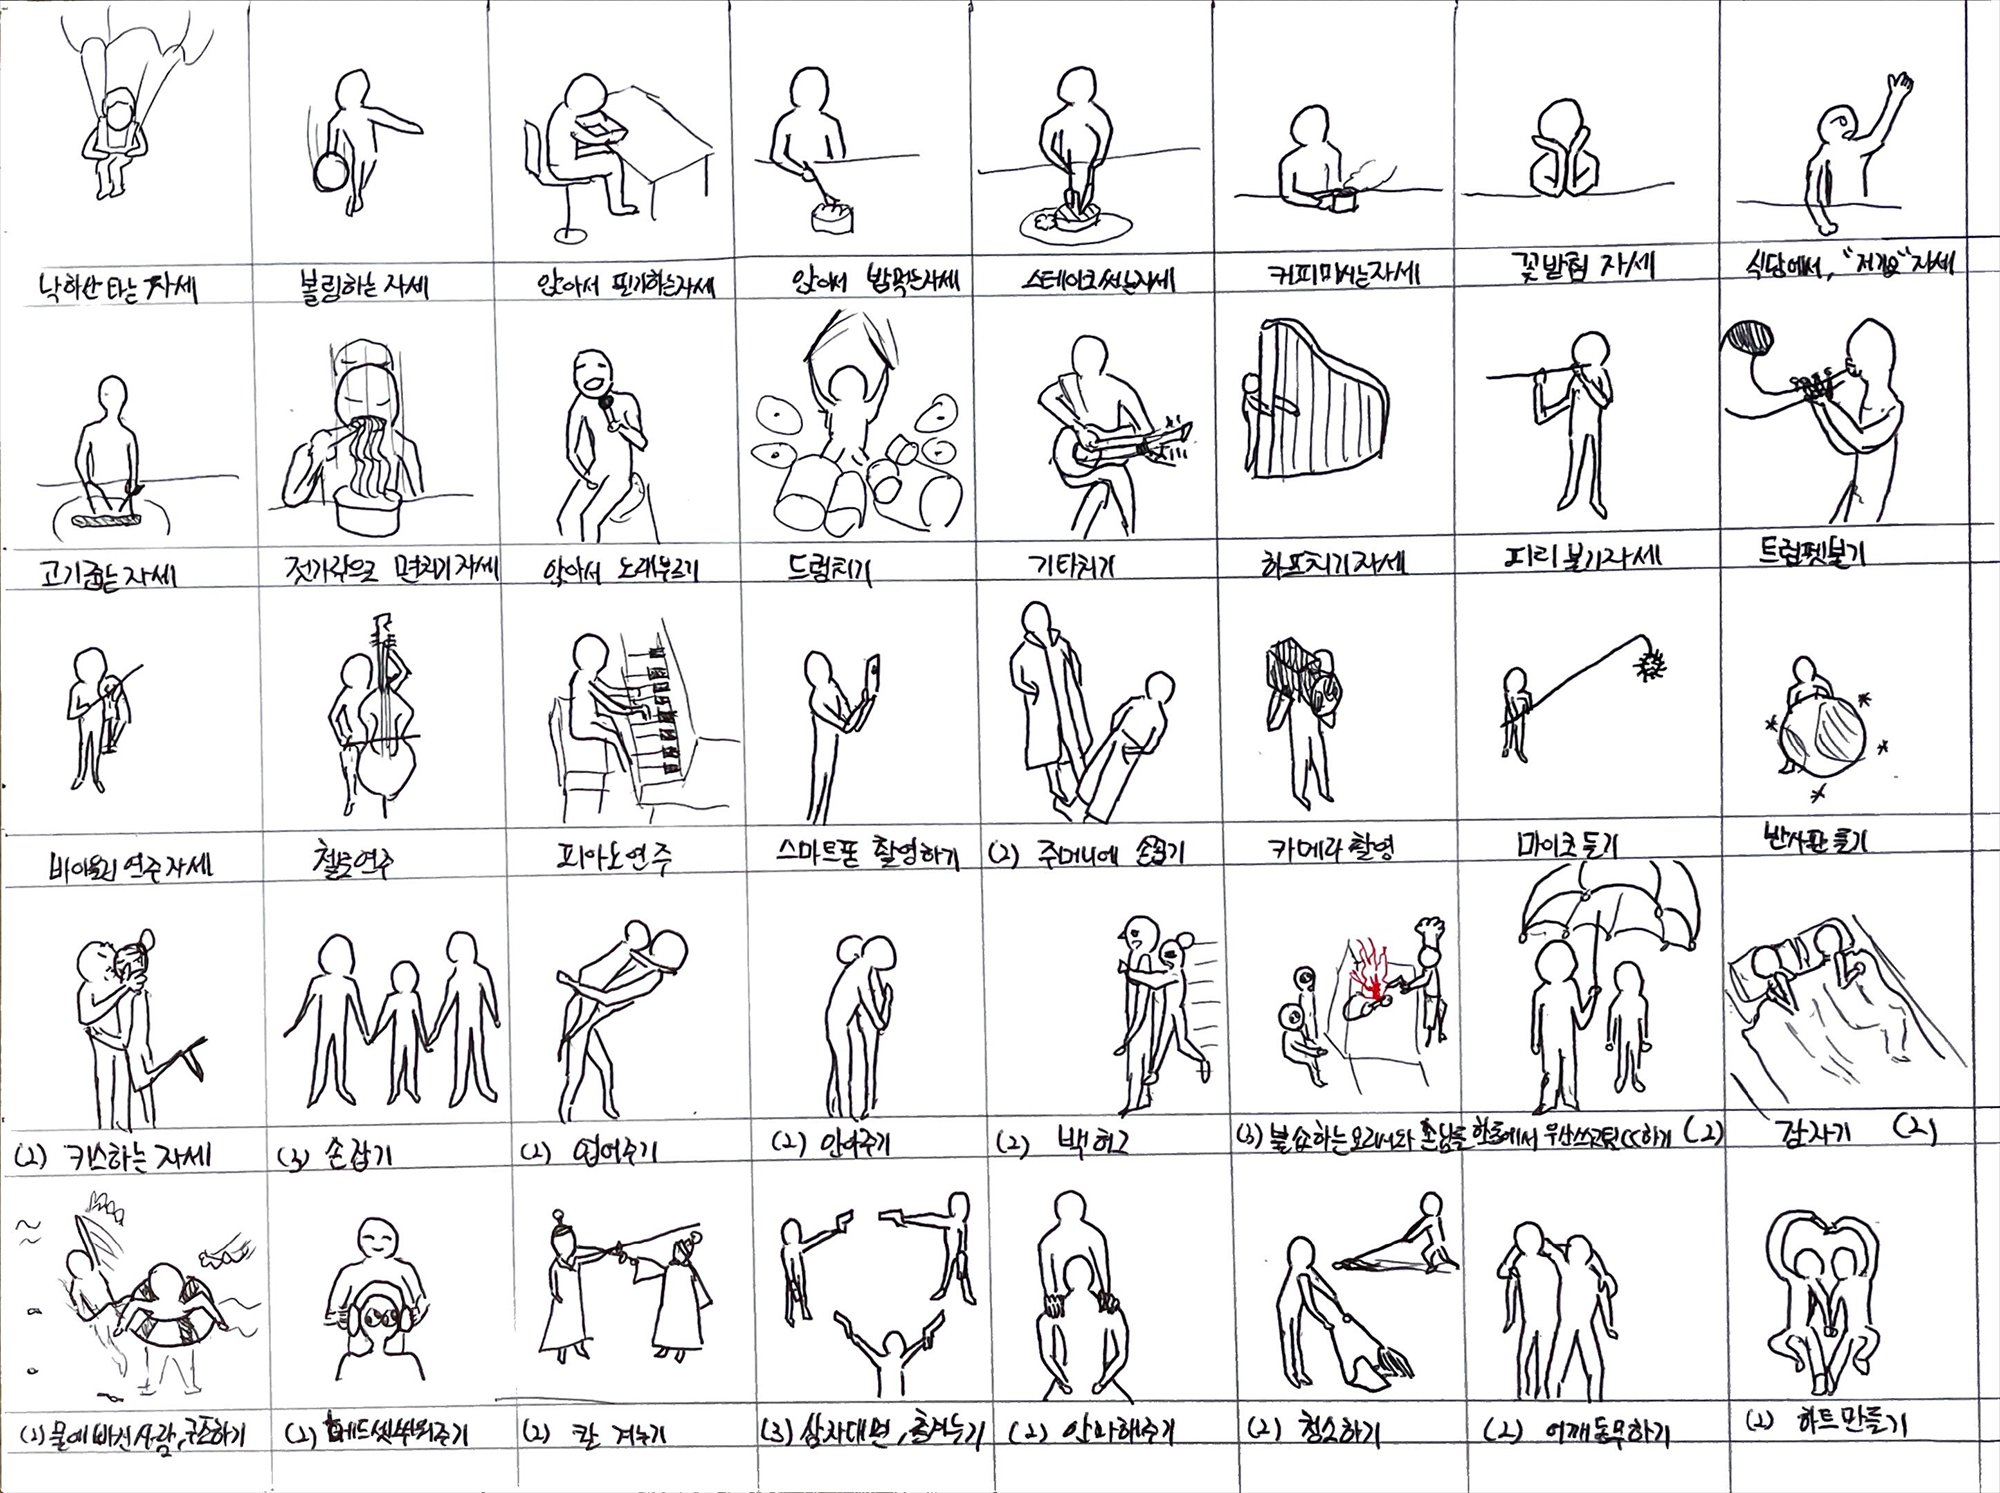 낙하산 타는 자세
볼링하는 자세
앉아서 필기하는자세
앉아서 밥먹는자세
스테이크써는자세
커피마시는자세
꽃받침 자세
식당에서, "저기요" 자세
고기굽는자세
젓가락으로 면치기자세
앉아서 노래부르기
드럼치기
기타치기
하프치기자세
피리 불기자세
트럼펫불기
바이올린 연주자세
첼로연주
피아노연주
스마트폰 촬영하기
(2) 주머니에 손꼽기
카메라 촬영
마이크 들기
반사판 들기
(2) 키스하는 자세
(3) 손잡기
(2) 업어주기
(2) 안아주기
(2) 백허그
(3) 불쇼하는 요리사와 손님들
한쪽에서 우산쓰고 하기 (2)
잠자기 (2)
(2) 물에빠진사람, 구조하기
(2) 헤드셋씌워주기
(2) 칼 겨누기
(3) 삼자대면, 총겨누기
(2) 안마해주기
(2) 청소하기
(2) 어깨동무하기
(2) 하트만들기